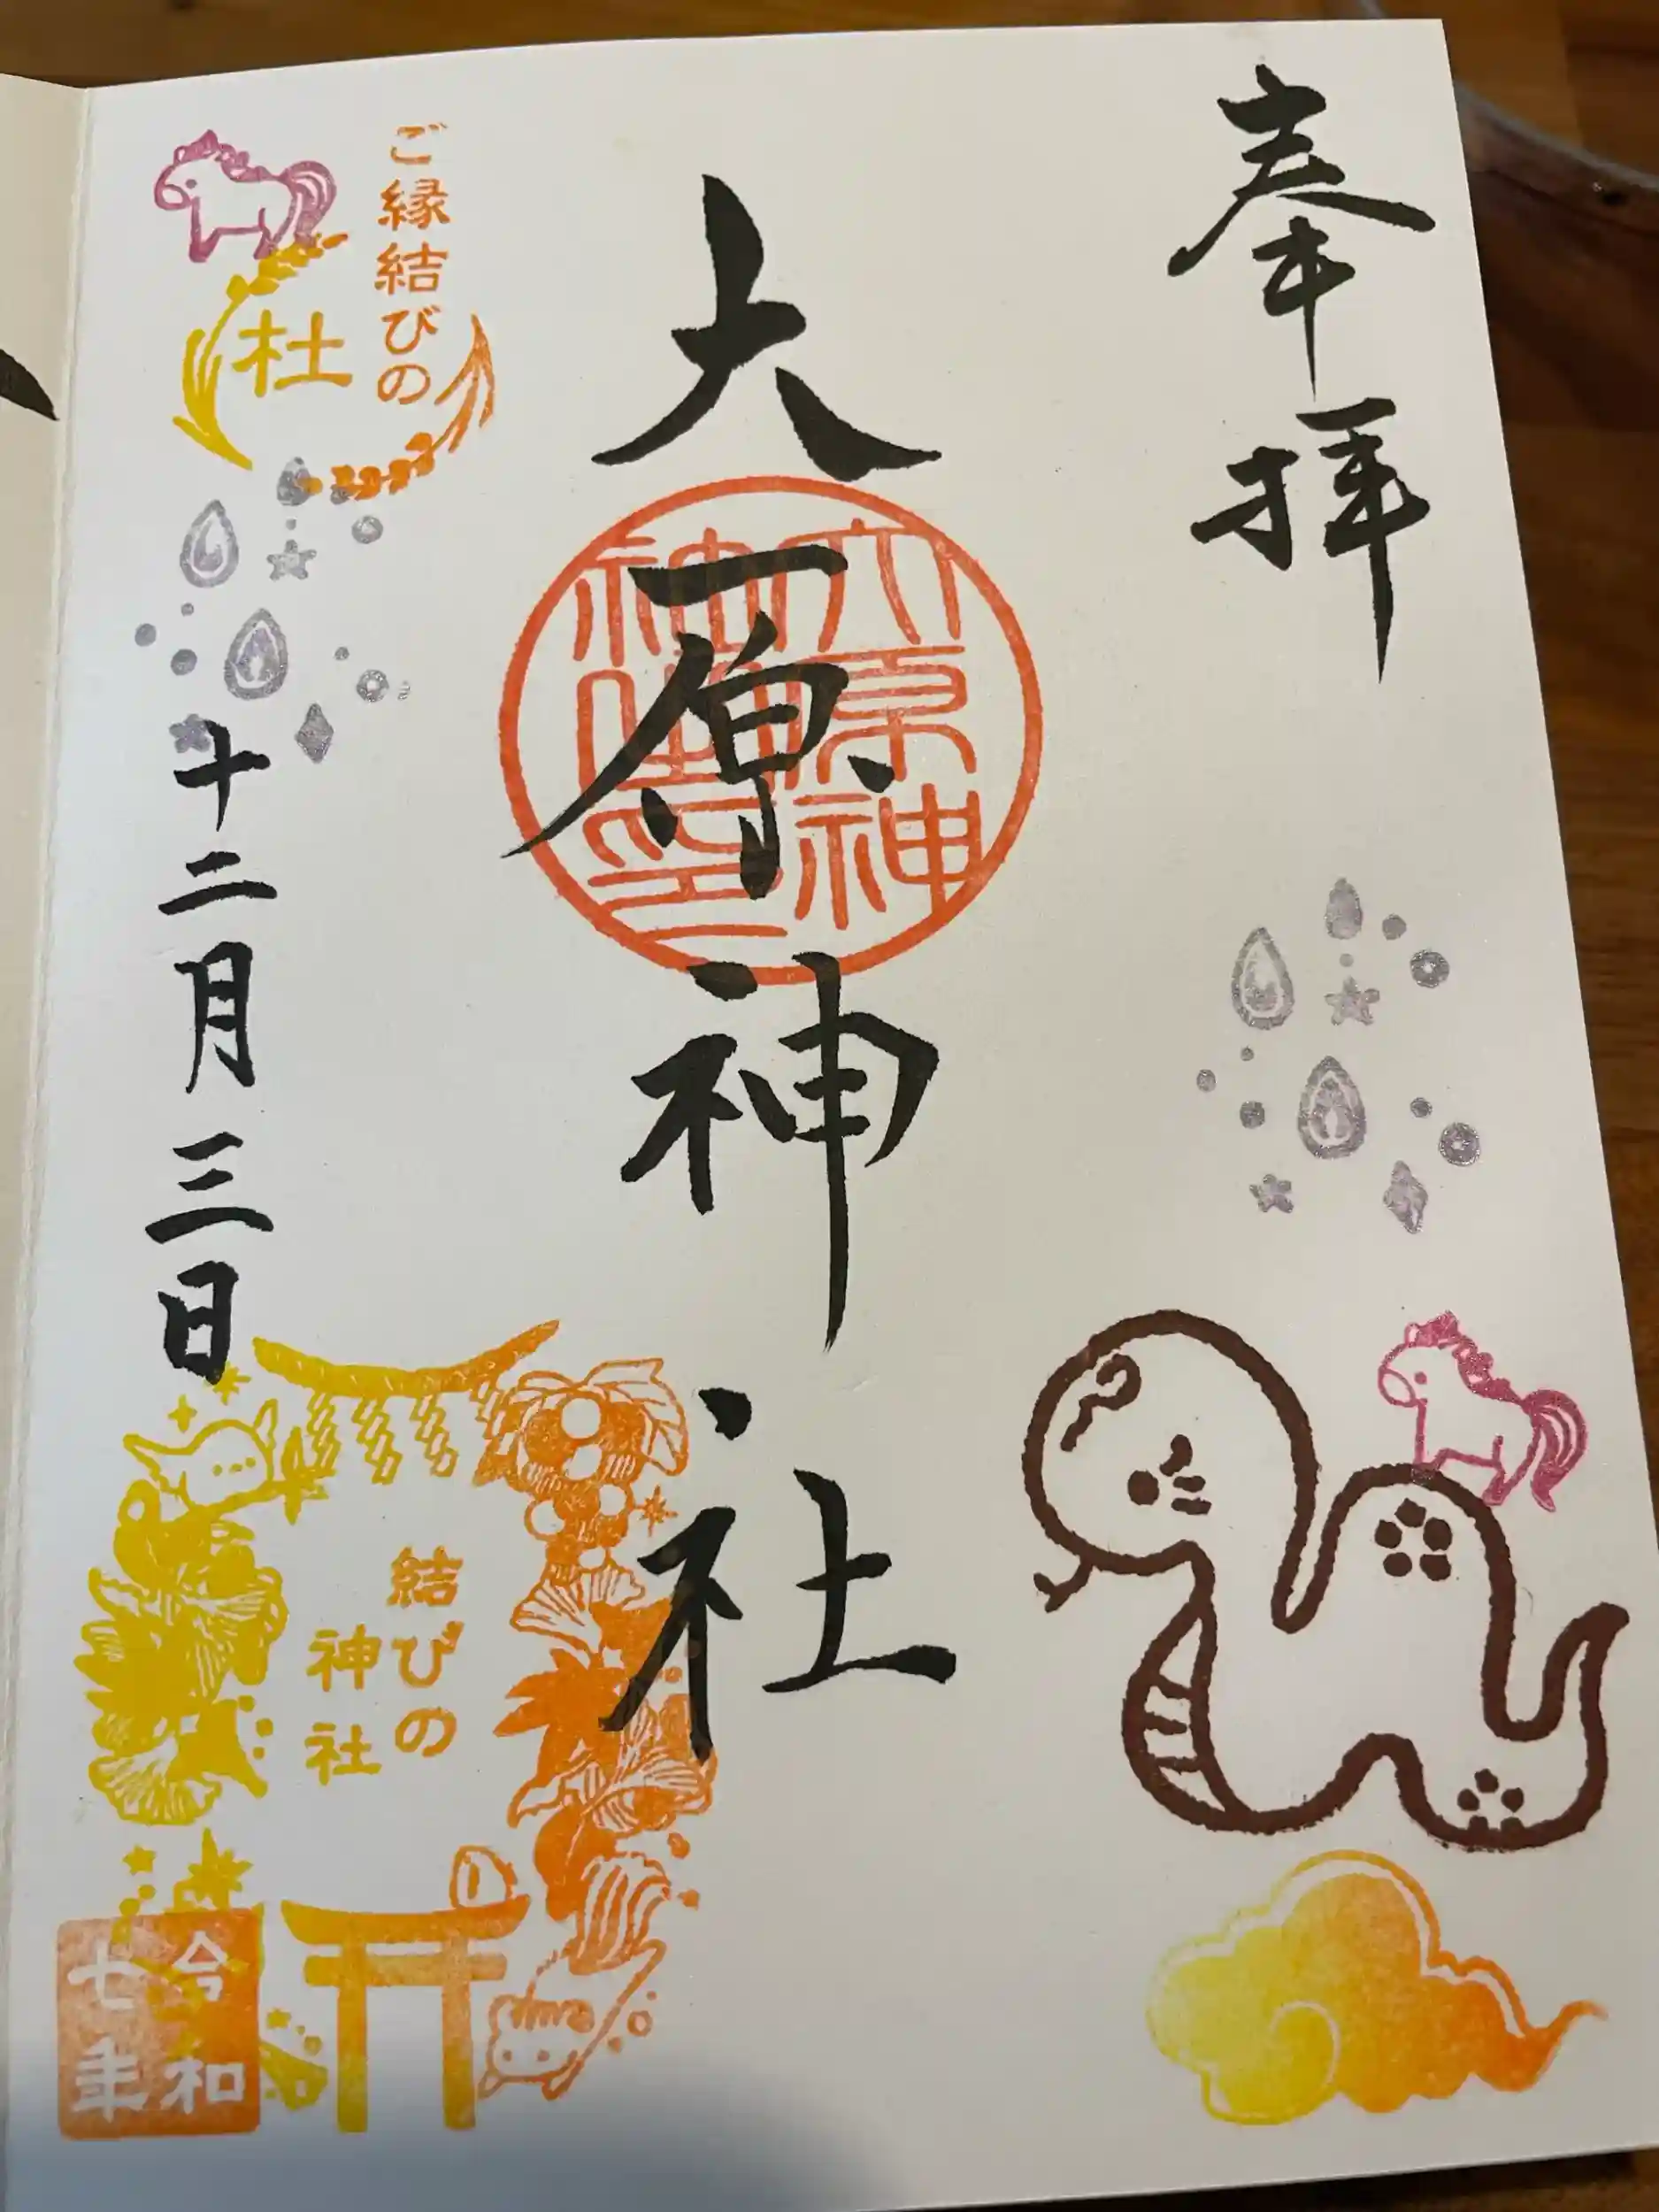 奉拝
大原神社
大原神
神社印
ご縁結びの
杜
十二月三日
結びの
神社
令和
七年